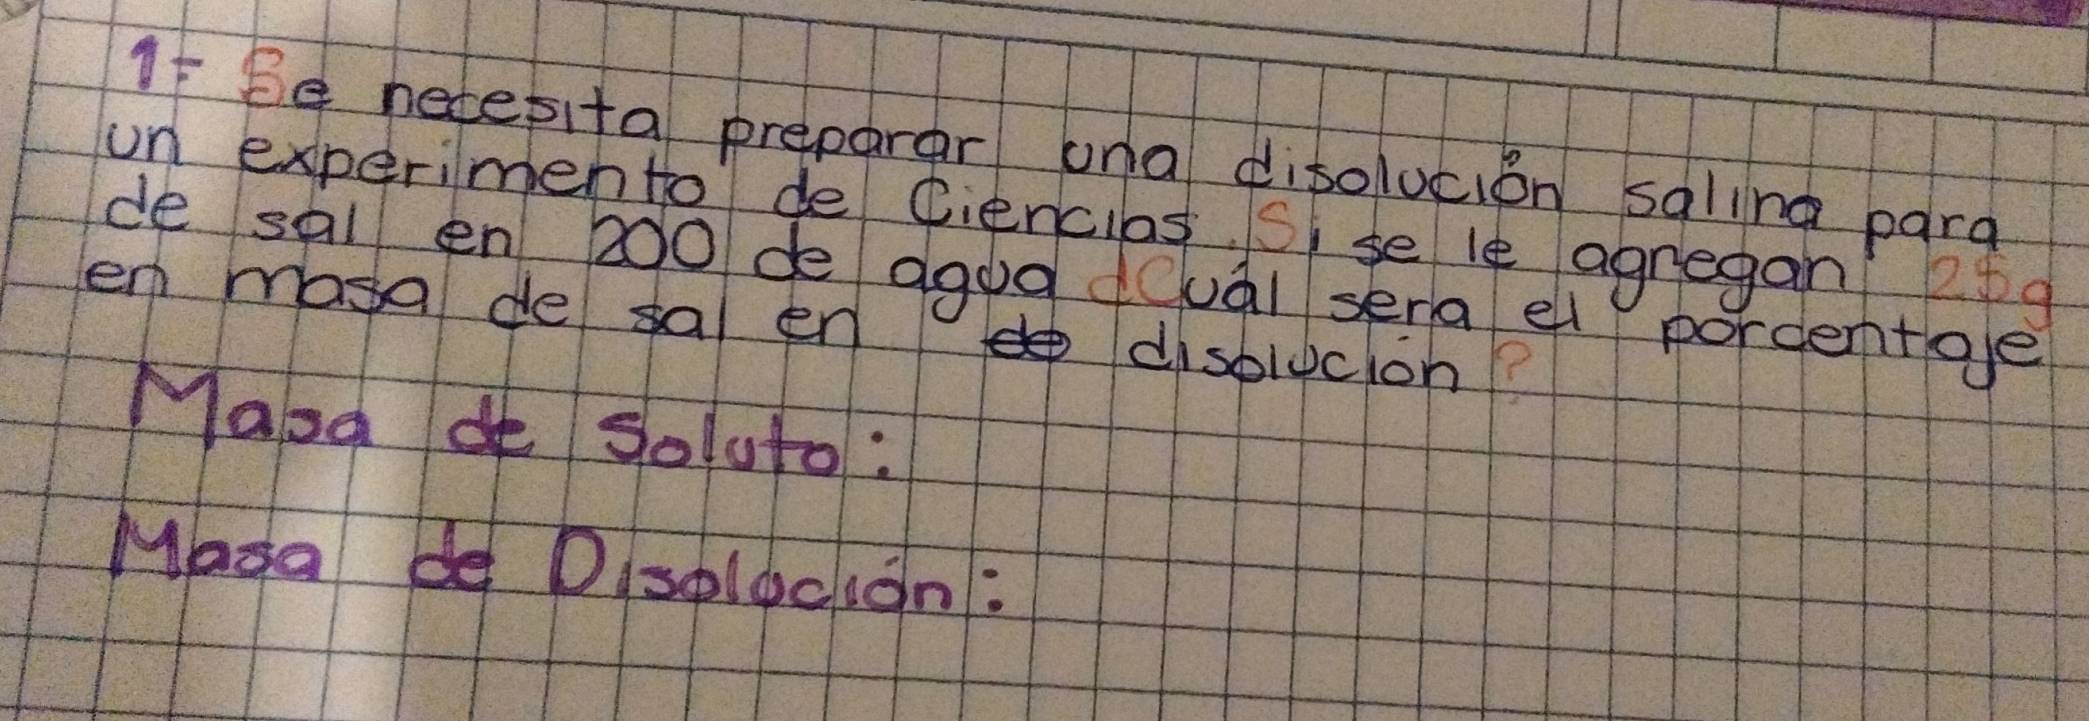 1- Se necesita preparar una disolución salina para
un experimento de Ciencias. Si se le agregan 25g
de sal en 200 de agua ¿Cuál sera el porcentaje
en masa de sal en de disolución?
Masa de Soluto:
Masa de Disolución: